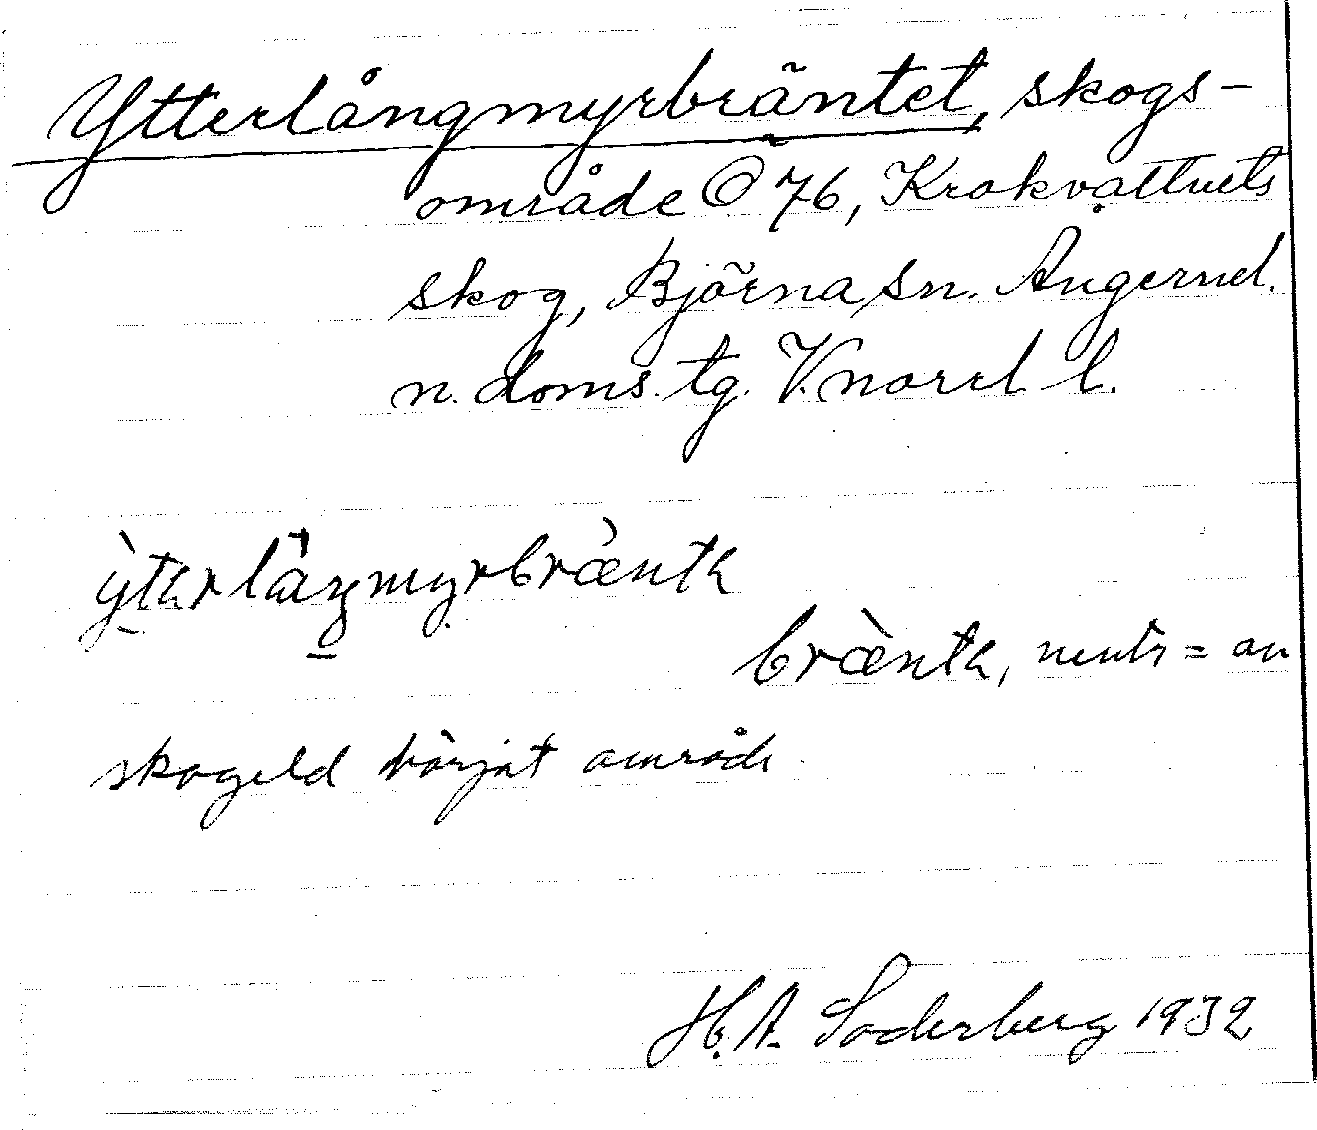 Ytterlångmyrbräntet, skogs-
område © 76, Krokvattnets
skog, Björna sn. Ångermd.
n. doms. tg. V.norrl. l.
brànth, neutr = av
skogeld härjat område
H. A. Söderberg 1932